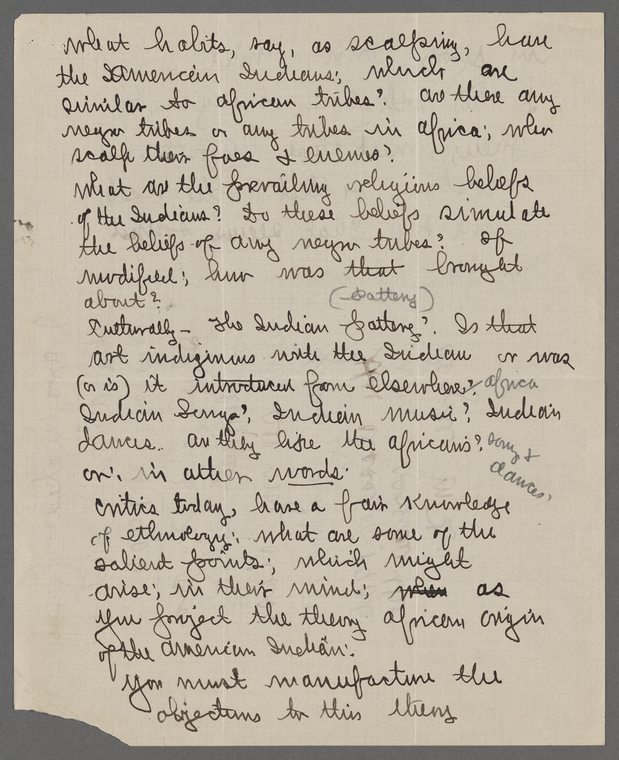 what habits, say, as scalping, have
the American Indians; which are
similar to african tribes? are there any
negro tribes or any tribes in africa; who
scalp their foes & enemies?
what are the prevailing religious beliefs
of the Indians? Do these beliefs simulate
the beliefs of any negro tribes? If
modified; how was that brought
about?
(-Pattery)
Culturally - The Indian pattery? Is that
art indiginus with the Indian or was
(or is) it introduced from elsewhere? africa
Indian Songs? Indian music? Indian
dances.. are they like the africans? song &
dances,
or, in other words.
critics today, have a fair knowledge
of ethnology; what are some of the
salient points; which might
arise; in their mind; when as
you project the theory african origin
of the american Indian.
You must manufacture the
objections to this theory